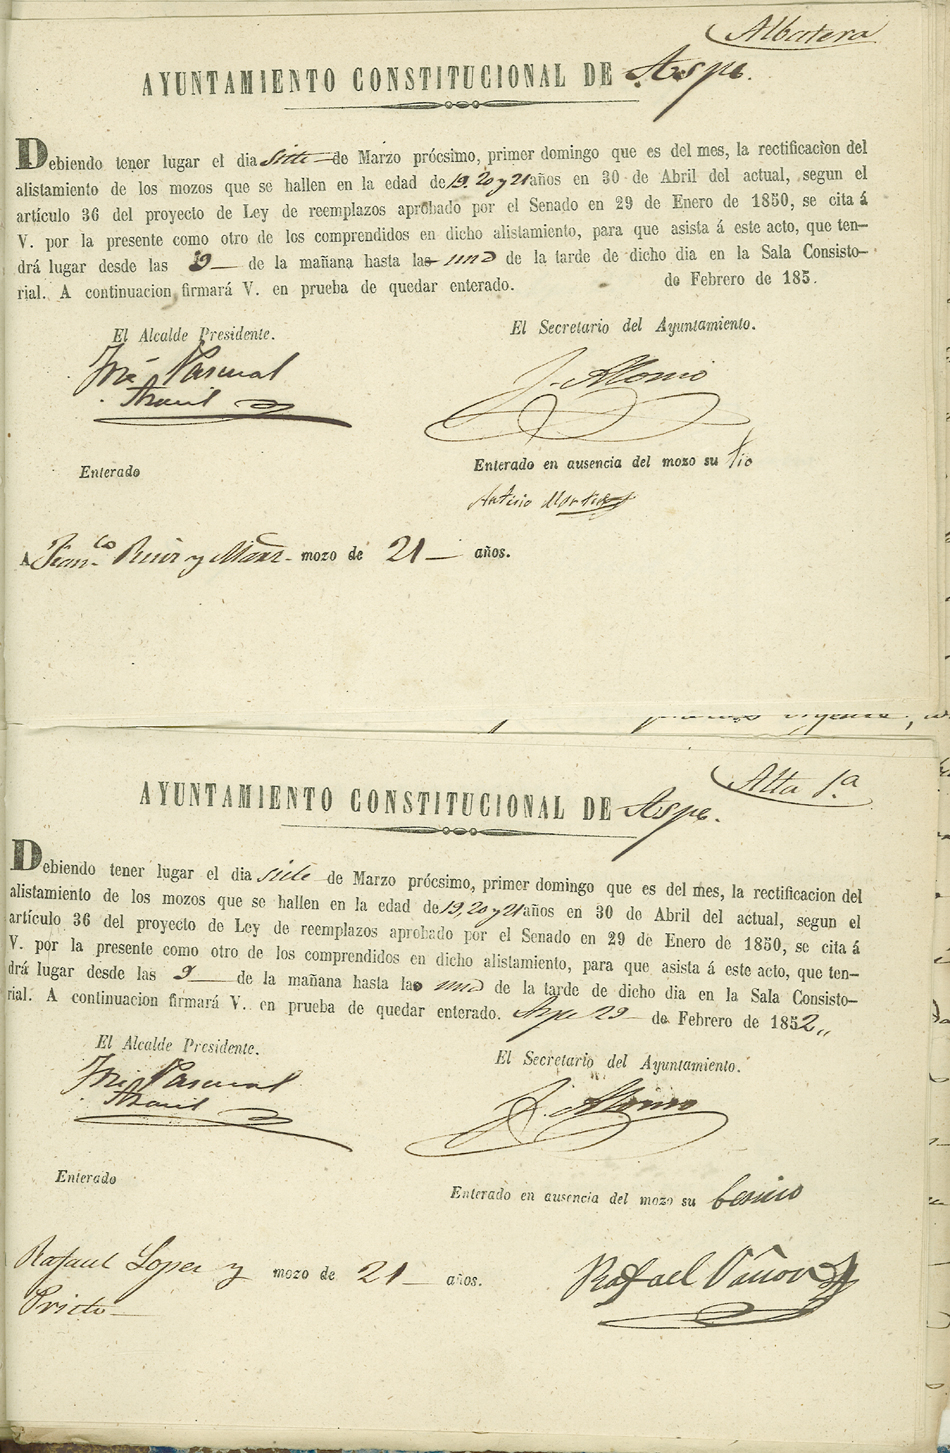 Albatera
AYUNTAMIENTO CONSTITUCIONAL DE Aspe.
Debiendo tener lugar el dia siete de Marzo prócsimo, primer domingo que es del mes, la rectificacion del
alistamiento de los mozos que se hallen en la edad de 19. 20 y 21 años en 30 de Abril del actual, segun el
artículo 36 del proyecto de Ley de reemplazos aprobado por el Senado en 29 de Enero de 1850, se cita á
V. por la presente como otro de los comprendidos en dicho alistamiento, para que asista á este acto, que ten-
drá lugar desde las 9 de la mañana hasta las una de la tarde de dicho dia en la Sala Consisto-
rial. A continuacion firmará V. en prueba de quedar enterado. de Febrero de 185 .
El Alcalde Presidente. El Secretario del Ayuntamiento.
José Pascual J. Alonso
Enterado Enterado en ausencia del mozo su tio
Antonio
A Fran.co Ruiz y mozo de 21 años.
Alta 1.a
AYUNTAMIENTO CONSTITUCIONAL DE Aspe.
Debiendo tener lugar el dia siete de Marzo prócsimo, primer domingo que es del mes, la rectificacion del
alistamiento de los mozos que se hallen en la edad de 19, 20 y 21 años en 30 de Abril del actual, segun el
artículo 36 del proyecto de Ley de reemplazos aprobado por el Senado en 29 de Enero de 1850, se cita á
V. por la presente como otro de los comprendidos en dicho alistamiento, para que asista á este acto, que ten-
drá lugar desde las 9 de la mañana hasta las una de la tarde de dicho dia en la Sala Consisto-
rial. A continuacion firmará V. en prueba de quedar enterado. Aspe 29 de Febrero de 1852,,
El Alcalde Presidente. El Secretario del Ayuntamiento.
José Pascual J. Alonso
Enterado Enterado en ausencia del mozo su
Rafael Lopez y mozo de 21 años. Rafael
Prieto